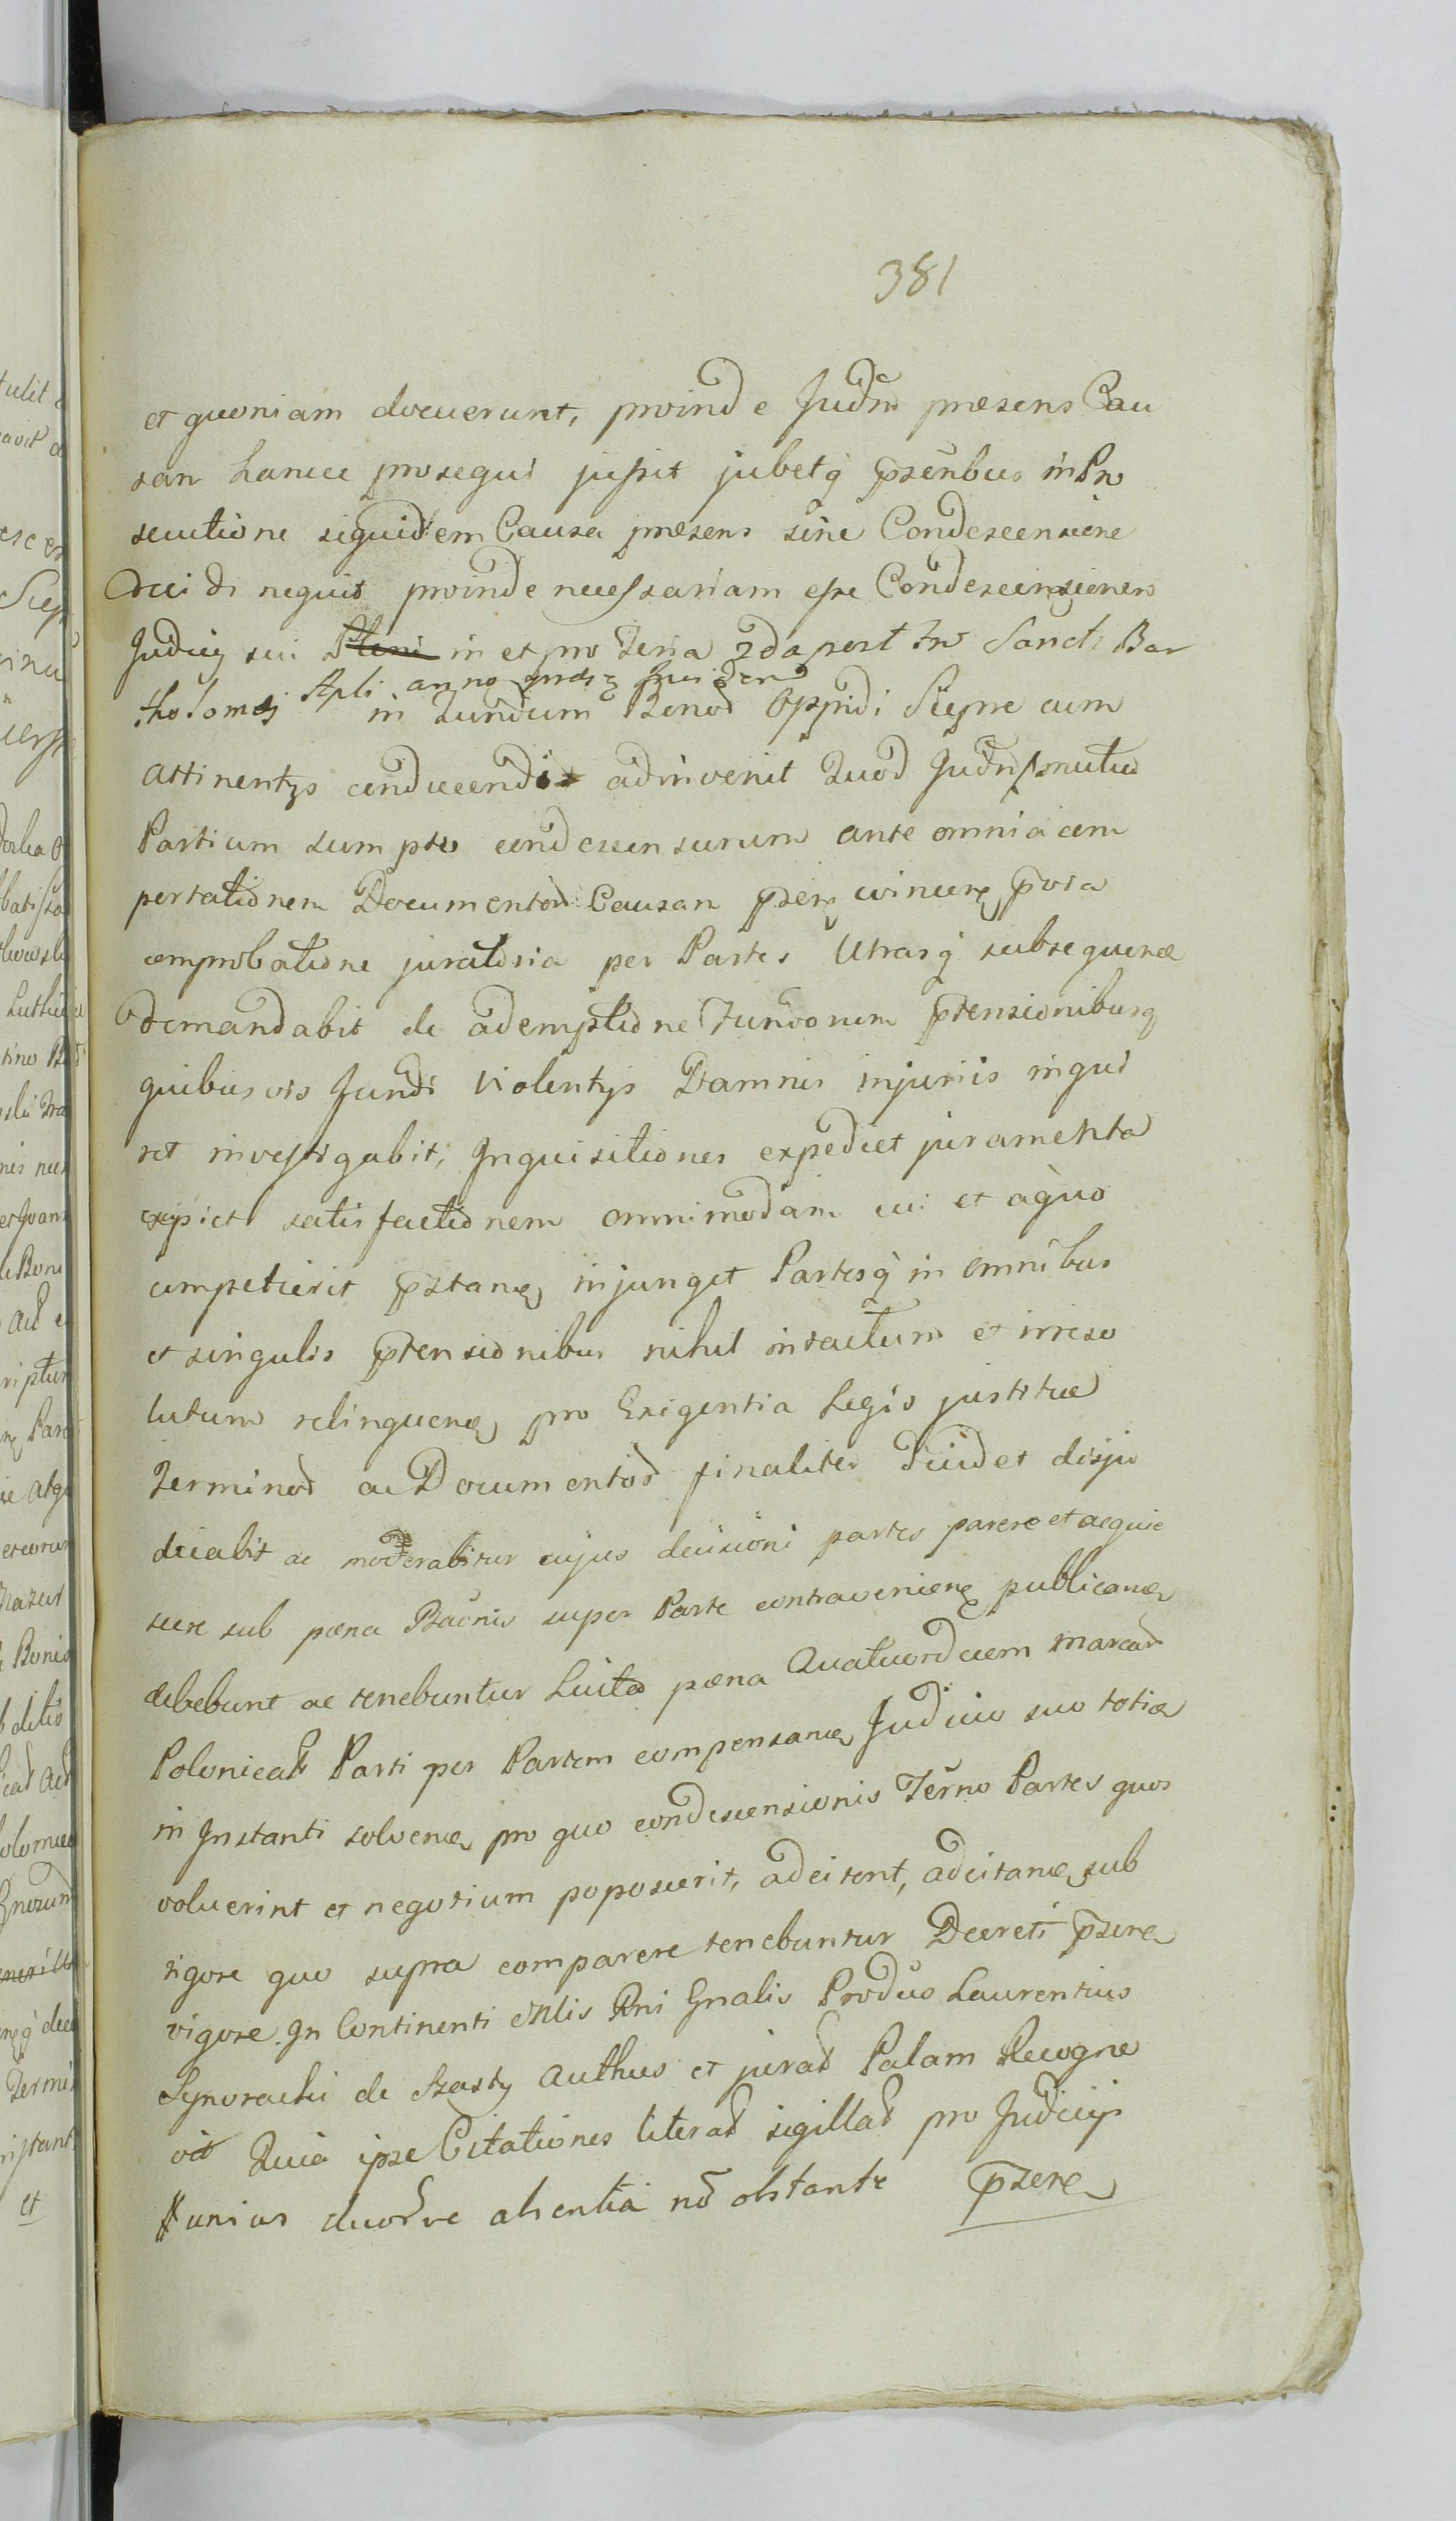 381
et quoniam docuerunt, proinde Judm̃ præsens Cau
sam hancce prosequi jussit jubetq̃ pzenbus in Pro
secutione siquidem Causa præsens sine Condescensione
decidi nequit proinde necessariam esse Condescensionem
Judicij sui Pleni in et pro Feria 2da post Fm̃ Sancti Bar
tholomæj Apli anno
in Fundum Bonoꝝ Oppidi Siepne cum
attinentys conducendi adinvenit Quod Judm̃ mutuo
Partium sumptu condescensurum ante omnia com
portationem Documentoꝝ Causam
comprobatione juratoria per Partes Utrasq̃ subsequen
demandabit de ademptione Fundorum ptensionibusq
quibusvis Fundi violentys Damnis injuriis inqui
ret investigabit, Inquisitiones expediet juramenta
excipiet satisfactionem omnimodam cui et aquo
competierit pstan injunget Partesq̃ in omnibus
et singulis ptensionibus nihil intactum et irreso
lutum relinquen pro Exigentia Legis justitiæ
Terminoꝝ ac Documentoꝝ finaliter decidet disju
dicabit ac moderabitur cujus decisioni partes parere et acquie
scere sub pœna Bãnis super Parte contravenien publican
debebunt ac tenebuntur Luito pœna Quatuordecem marcaꝝ
Polonicaꝝ Parti per Partem compensan Judicio suo toties
in Instanti solven pro quo condescensionis Termno Partes quos
voluerint et negotium poposcerit, adcitent, adcitan sub
rigore quo supra comparere tenebuntur Decreti pzen
vigore. In Continenti Mtis Rni Gnalis Prodũs Laurentius
Synoracki de Szasty Authus et juraꝝ Palam Recogno
vit Quia ipse Citationes literaꝝ sigillaꝝ pro Judicijs
unius duorve absentia nõ obstante pzen